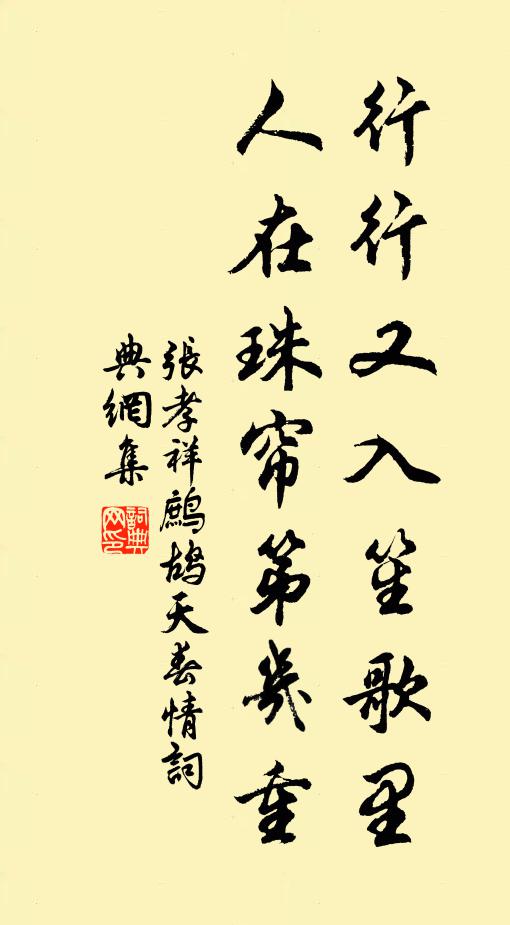 行行又入笙歌里
人在珠帘第幾重
張孝祥鷓鴣天春情詞
典網集
詞典網印